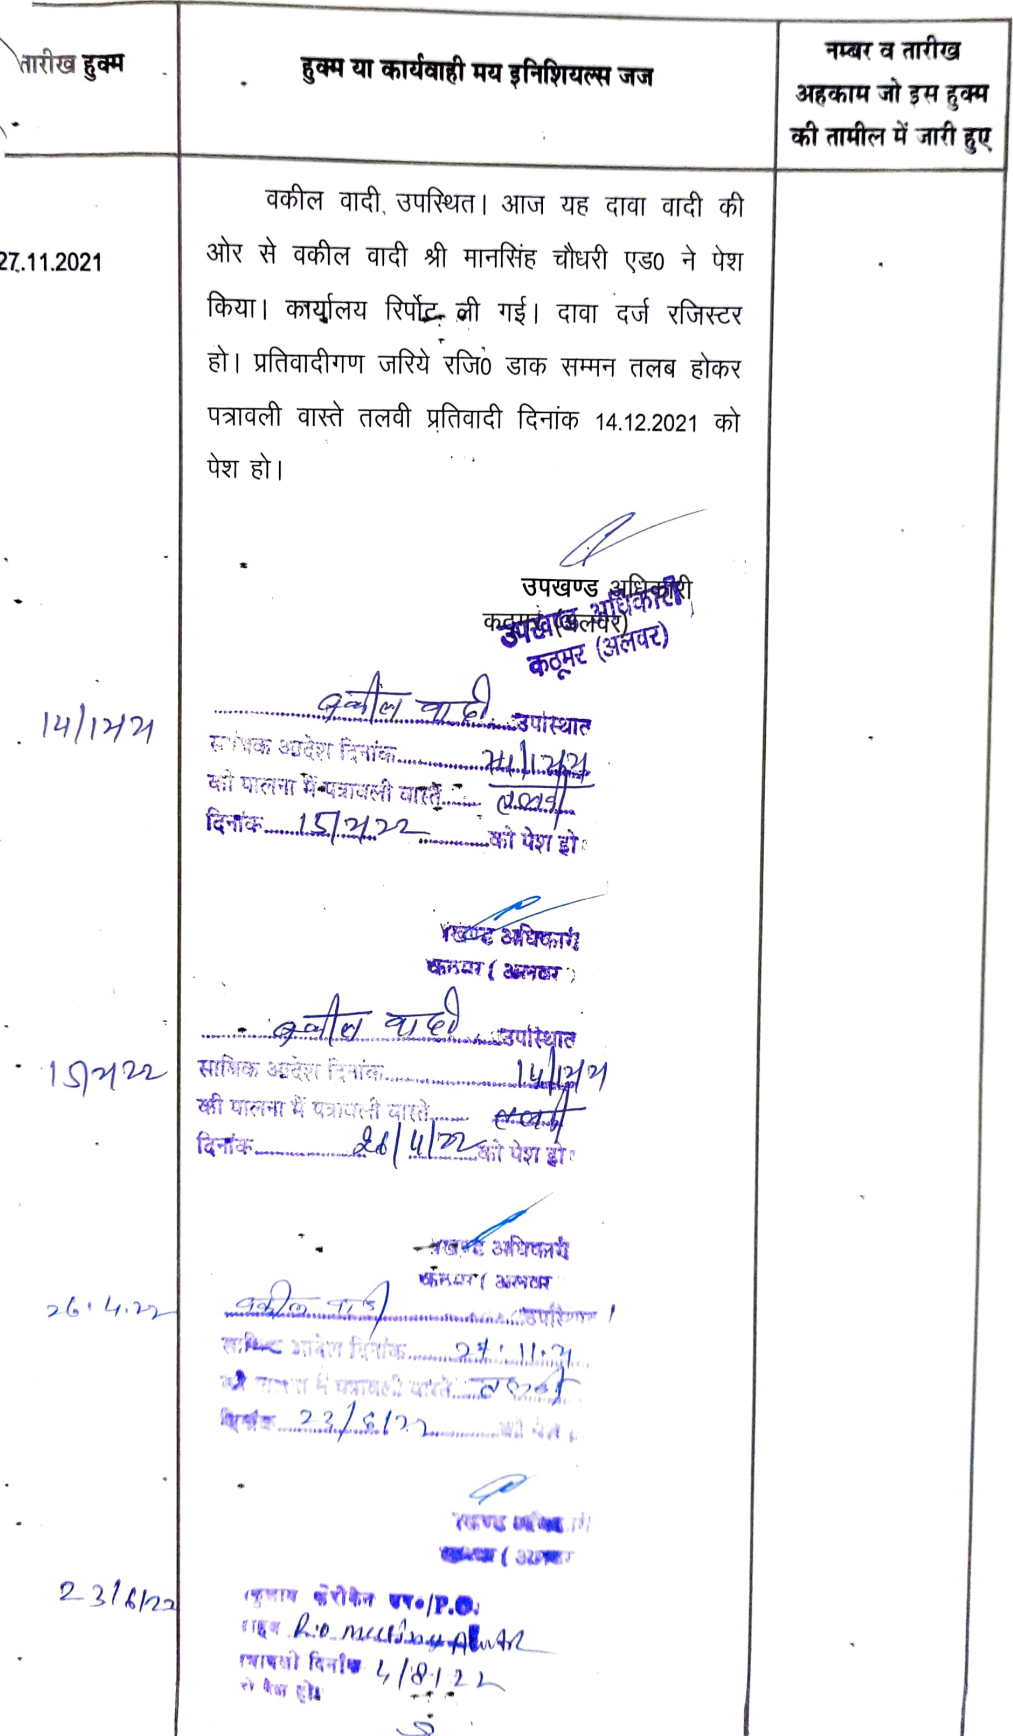 तारीख हुक्म
हुक्म या कार्यवाही मय इनिशियल्स जज
नम्बर व तारीख
अहकाम जो इस हुक्म
की तामील में जारी हुए
27.11.2021
वकील वादी, उपस्थित। आज यह दावा वादी की
ओर से वकील वादी श्री मानसिंह चौधरी एड0 ने पेश
किया। कार्यालय रिर्पोट ली गई। दावा दर्ज रजिस्टर
हो। प्रतिवादीगण जरिये रजि0 डाक सम्मन तलब होकर
पत्रावली वास्ते तलवी प्रतिवादी दिनांक 14.12.2021 को
पेश हो।
उपखण्ड अधिकारी
कठूमर (अलवर)
उपखण्ड अधिकारी
कठूमर (अलवर)
14/12/21
वकील वादी उपस्थित
साबिक आदेश दिनांक
की पालना में पत्रावली वास्ते तलवी
दिनांक 15/2/22 को पेश हो
खण्ड अधिकारी
कठूमर ( अलवर )
15/2/22
वकील वादी उपस्थित
साबिक आदेश दिनांक 14/12/21
की पालना में पत्रावली वास्ते तलवी
दिनांक 26/4/22 को पेश हो
खण्ड अधिकारी
कठूमर ( अलवर
26.4.22
वकील वादी उपस्थित
साबिक आदेश दिनांक 27.11.21
की पालना में पत्रावली वास्ते तलवी
दिनांक 23/6/22 को पेश
खण्ड
( अलवर
23/6/22
P.O.
R.O meeting ALWAR
पत्रावली दिनांक 4/8/22
को पेश हो।